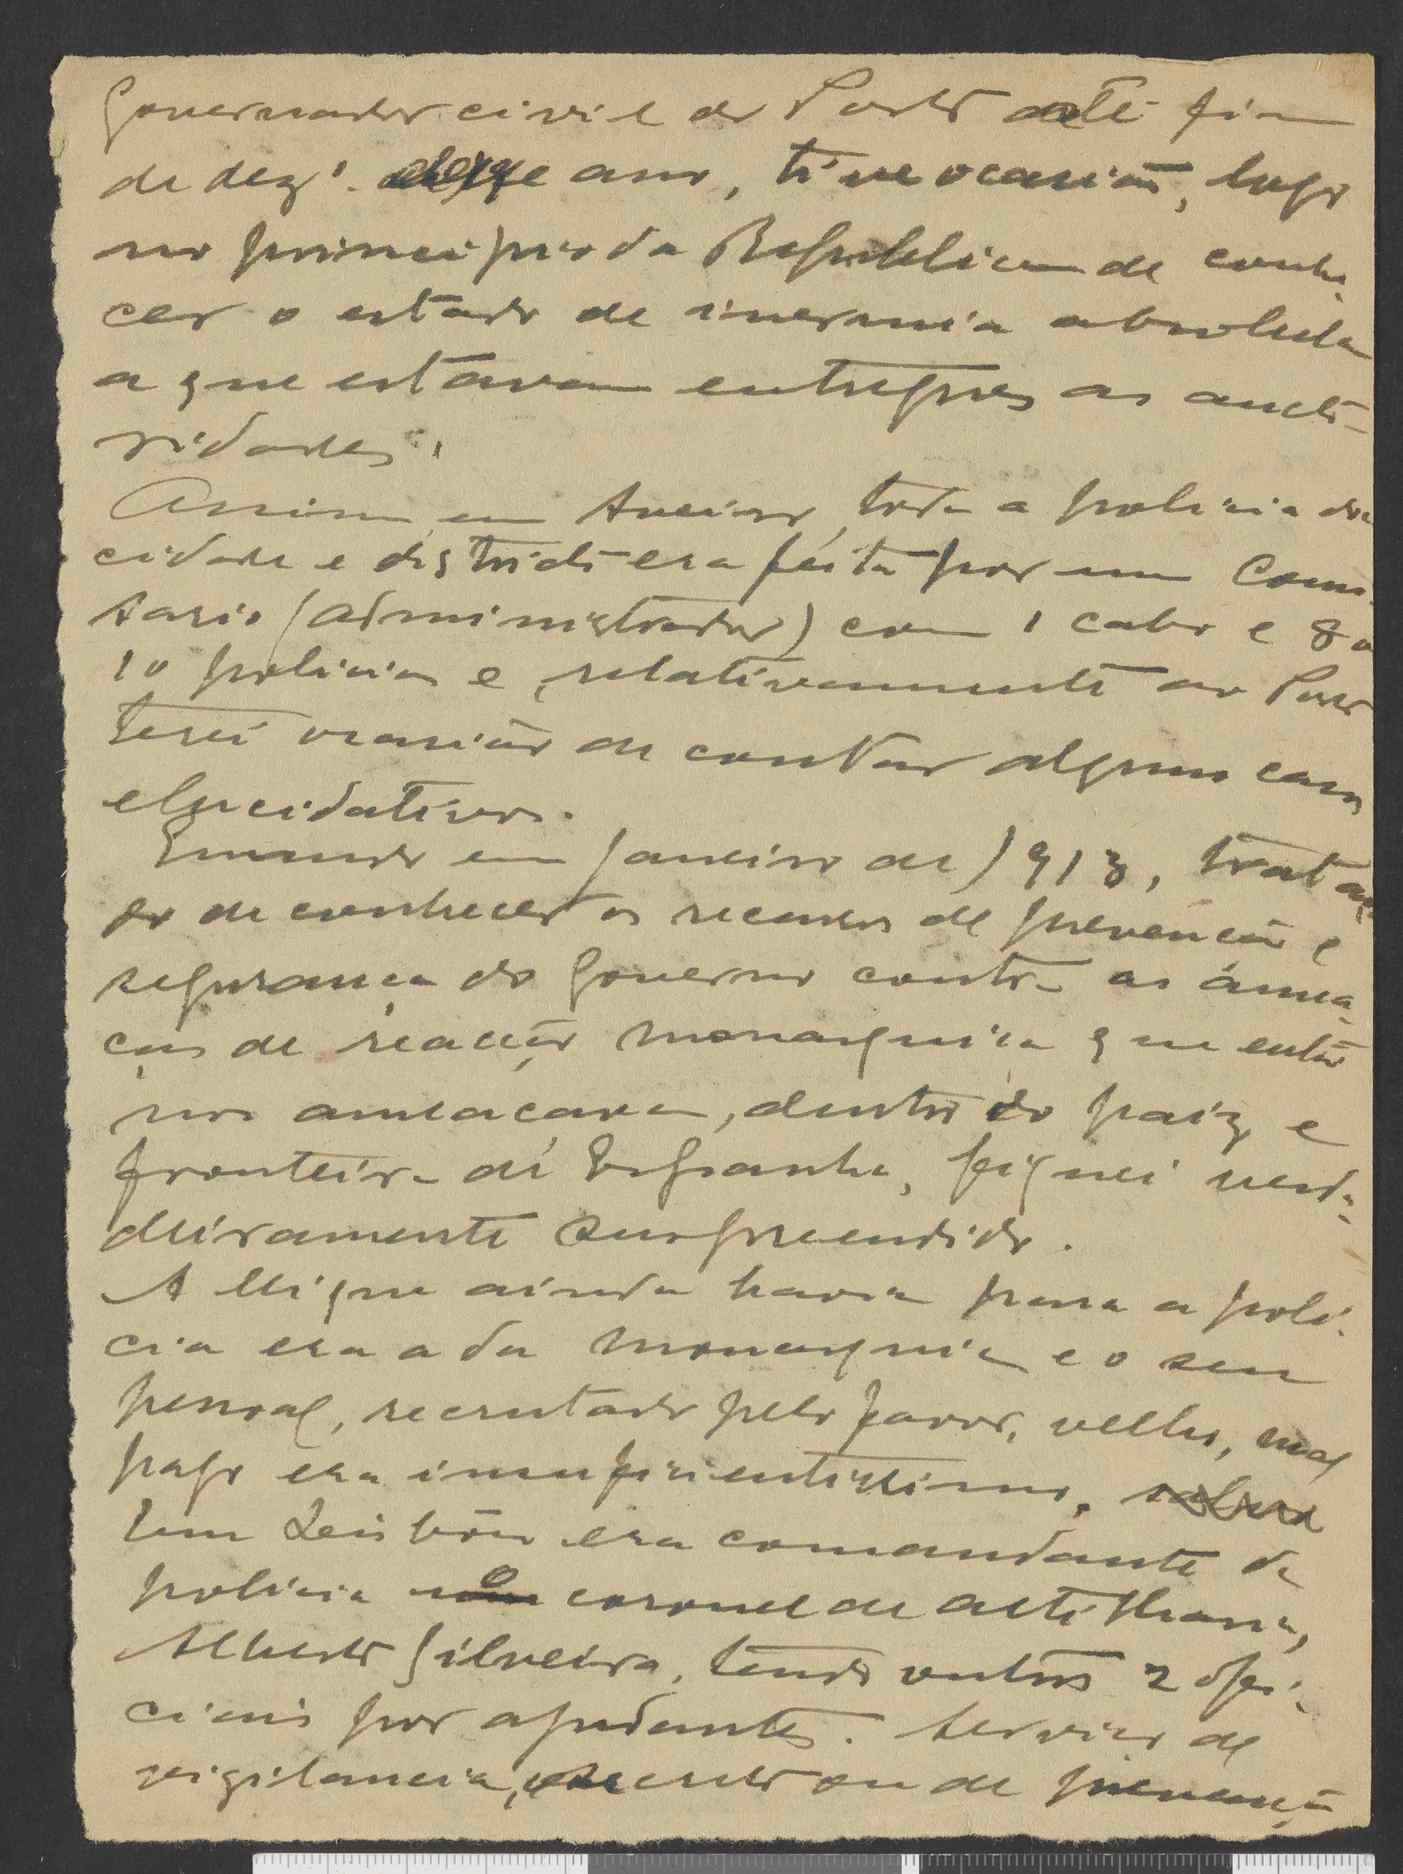 Governador civil do Porto até fim
de dez.º desse ano, tive ocasião, logo
no principio da Republica de conhe-
cer o estado de inermia absoluta
a que estavam entregues as aucto-
ridades.
Assim em Aveiro, toda a policia da
cidade e districto era feita por um Comis-
sario (administrador) com 1 cabo e 8 a
10 policias e, relativamente ao Porto
terei ocasião de contar alguns casos
elucidativos.
em Janeiro de 1913, tratan-
do de conhecer os recursos de prevenção e
segurança do Governo contra as amea-
ças de reacção monarquica que então
nos ameaçava, dentro do paiz e
fronteira de Espanha, fiquei verda-
deiramente surpreendido.
A lei que ainda havia para a poli-
cia era a da monarquia e o seu
pessoal, recrutado pelo favor, velho, mal
pago era insuficientissimo.
Em Lisbôa era comandante da
policia o coronel de artilharia,
Alberto Silveira, tendo outros 2 ofi-
ciais por ajudantes. Serviço de
vigilancia, secreto ou de prevenção